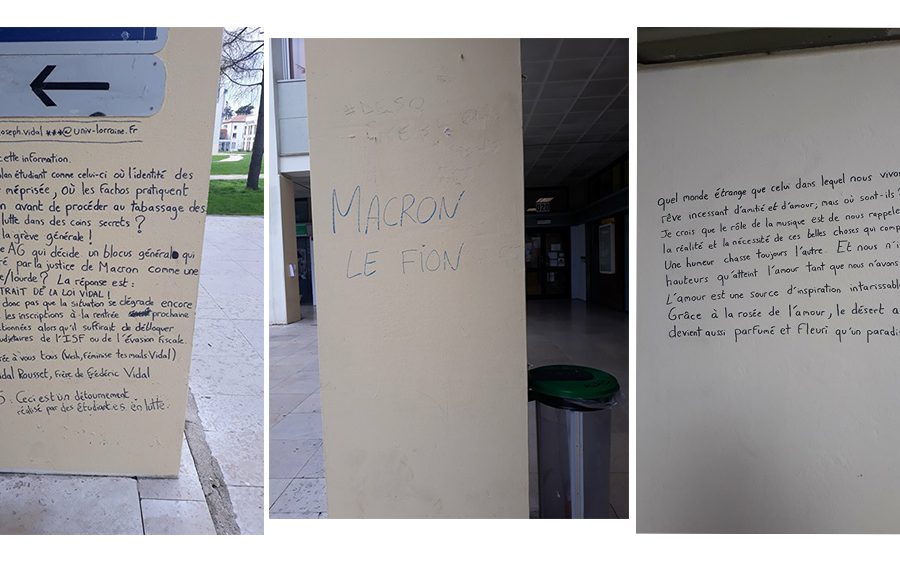 oseph.vidal ***@univ-lorraine.fr
cette information.
lan étudiant comme celui-ci où l'identité des
méprisée, où les fachos pratiquent
n avant de procéder au tabassage des
lutte dans des coins secrets ?
la grève générale !
e AG qui décide un blocus général qui
ré par la justice de Macron comme une
e/lourde ? La réponse est :
TRAIT DE LA LOI VIDAL !
donc pas que la situation se dégrade encore
les inscriptions à la rentrée prochaine
ctionnées alors qu'il suffirait de débloquer
udgétaires de l'ISF ou de l'évasion fiscale.
rée à vous tous (Wesh, féminise tes mails Vidal)
idal Rousset, frère de Frédéric Vidal
S : Ceci est un détournement
réalisé par des étudiant.e.s en lutte.
MACRON
LE FION
020
quel monde étrange que celui dans lequel nous vivon
rêve incessant d'amitié et d'amour, mais où sont-ils ?
Je crois que le rôle de la musique est de nous rappele
la réalité et la nécessité de ces belles choses qui comp
Une humeur chasse toujours l'autre. Et nous n'i
hauteurs qu'atteint l'amour tant que nous n'avons
L'amour est une source d'inspiration intarissabl
Grâce à la rosée de l'amour, le désert a
devient aussi parfumé et fleuri qu'un paradi